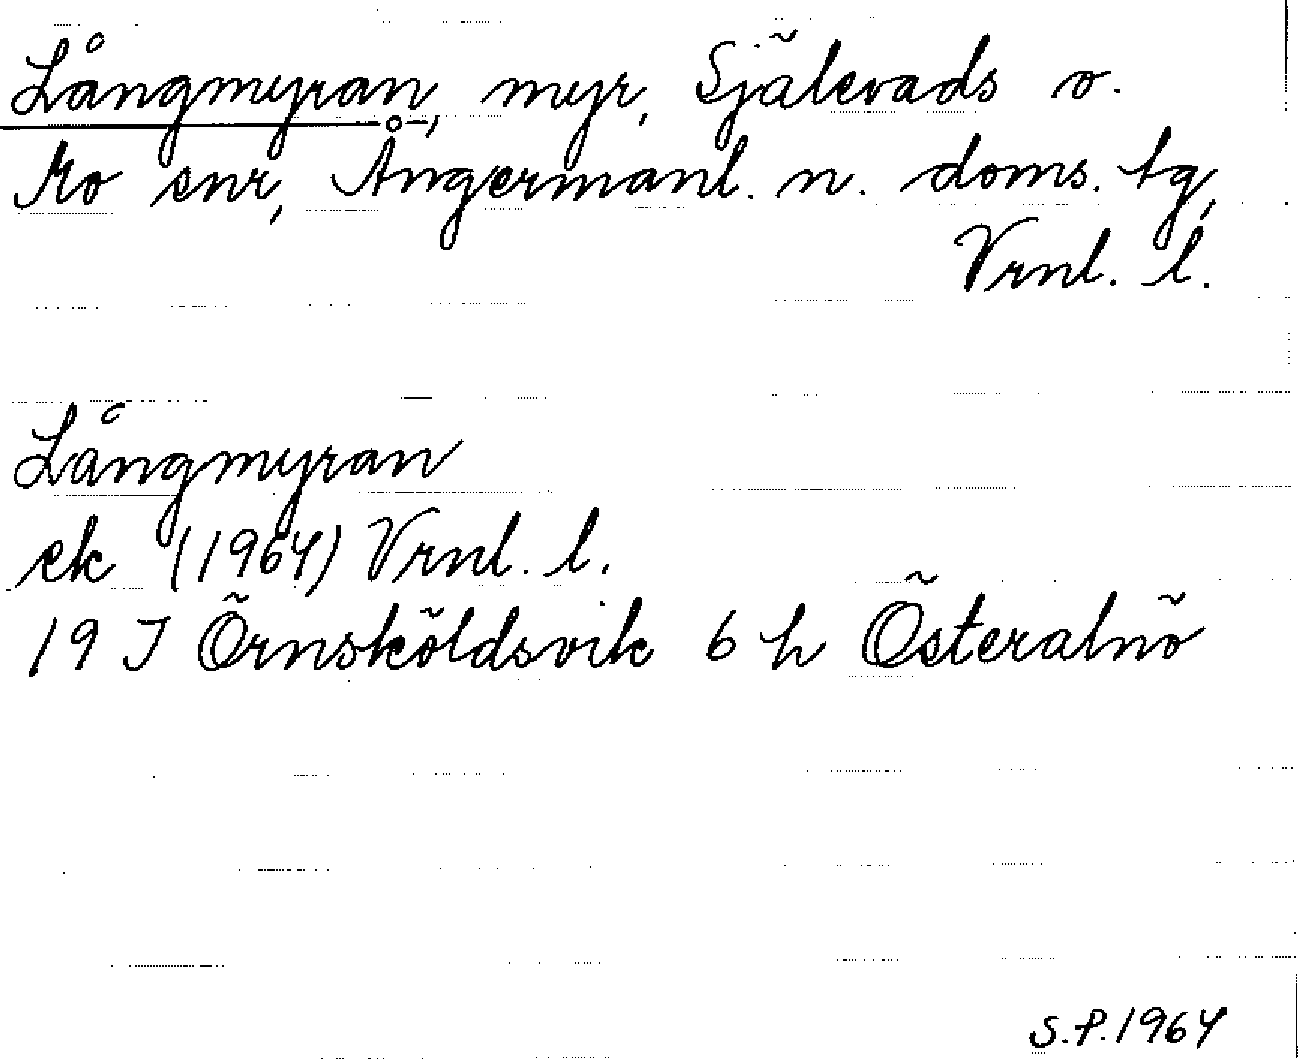 Långmyran, myr, Själevads o.
Mo snr, Ångermanl. n. doms. tg,
Vrnl. l.
Långmyran
ek (1964) Vrnl. l.
19 J Örnsköldsvik 6 h Österalnö
S.P.1964